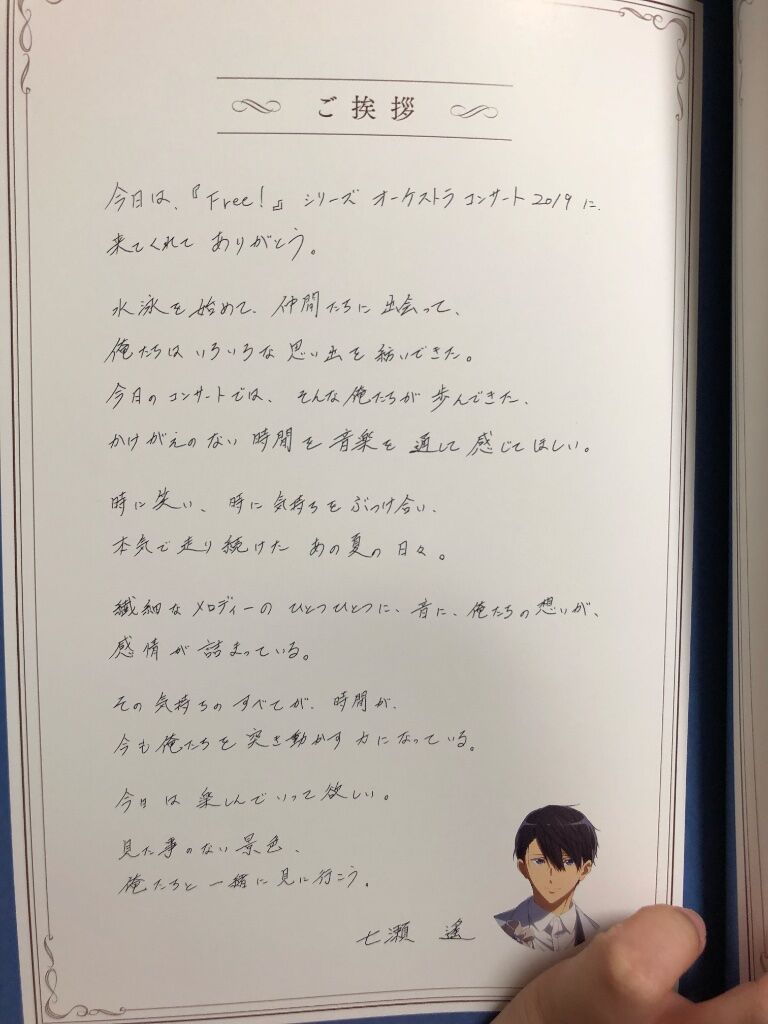 ご挨拶
今日は、『Free!』シリーズ オーケストラ コンサート2019に、
来てくれて ありがとう。
水泳を始めて、仲間たちに出会って、
俺たちはいろいろな思い出を紡いできた。
今日のコンサートでは、そんな俺たちが歩んできた、
かけがえのない時間を音楽を通して感じてほしい。
時に笑い、時に気持ちをぶつけ合い、
本気で走り続けた あの夏の日々。
繊細なメロディーのひとつひとつに、音に、俺たちの想いが、
感情が詰まっている。
その気持ちのすべてが、時間が、
今も俺たちを突き動かす力になっている。
今日は楽しんでいって欲しい。
見た事のない景色、
俺たちと一緒に見に行こう。
七瀬 遙